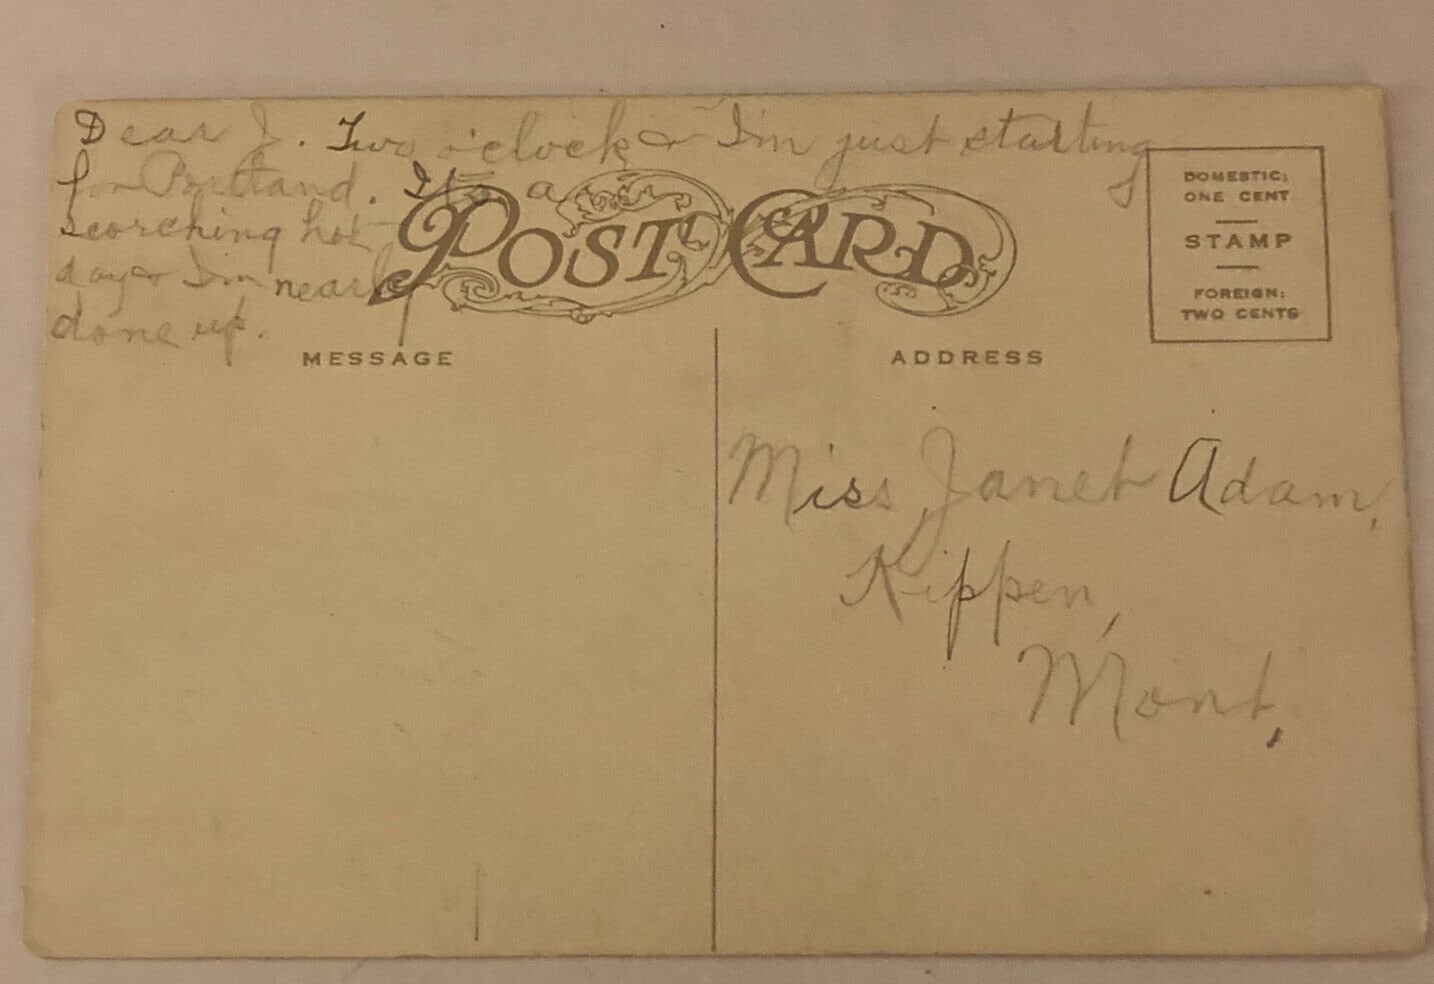 Dear J. Two o'clock & I'm just starting
for Portland. It's a
scorching hot
day & I'm nearly
done up.
POST CARD
DOMESTIC:
ONE CENT
STAMP
FOREIGN:
TWO CENTS
MESSAGE
ADDRESS
Miss Janet Adam,
Kippen,
Mont,